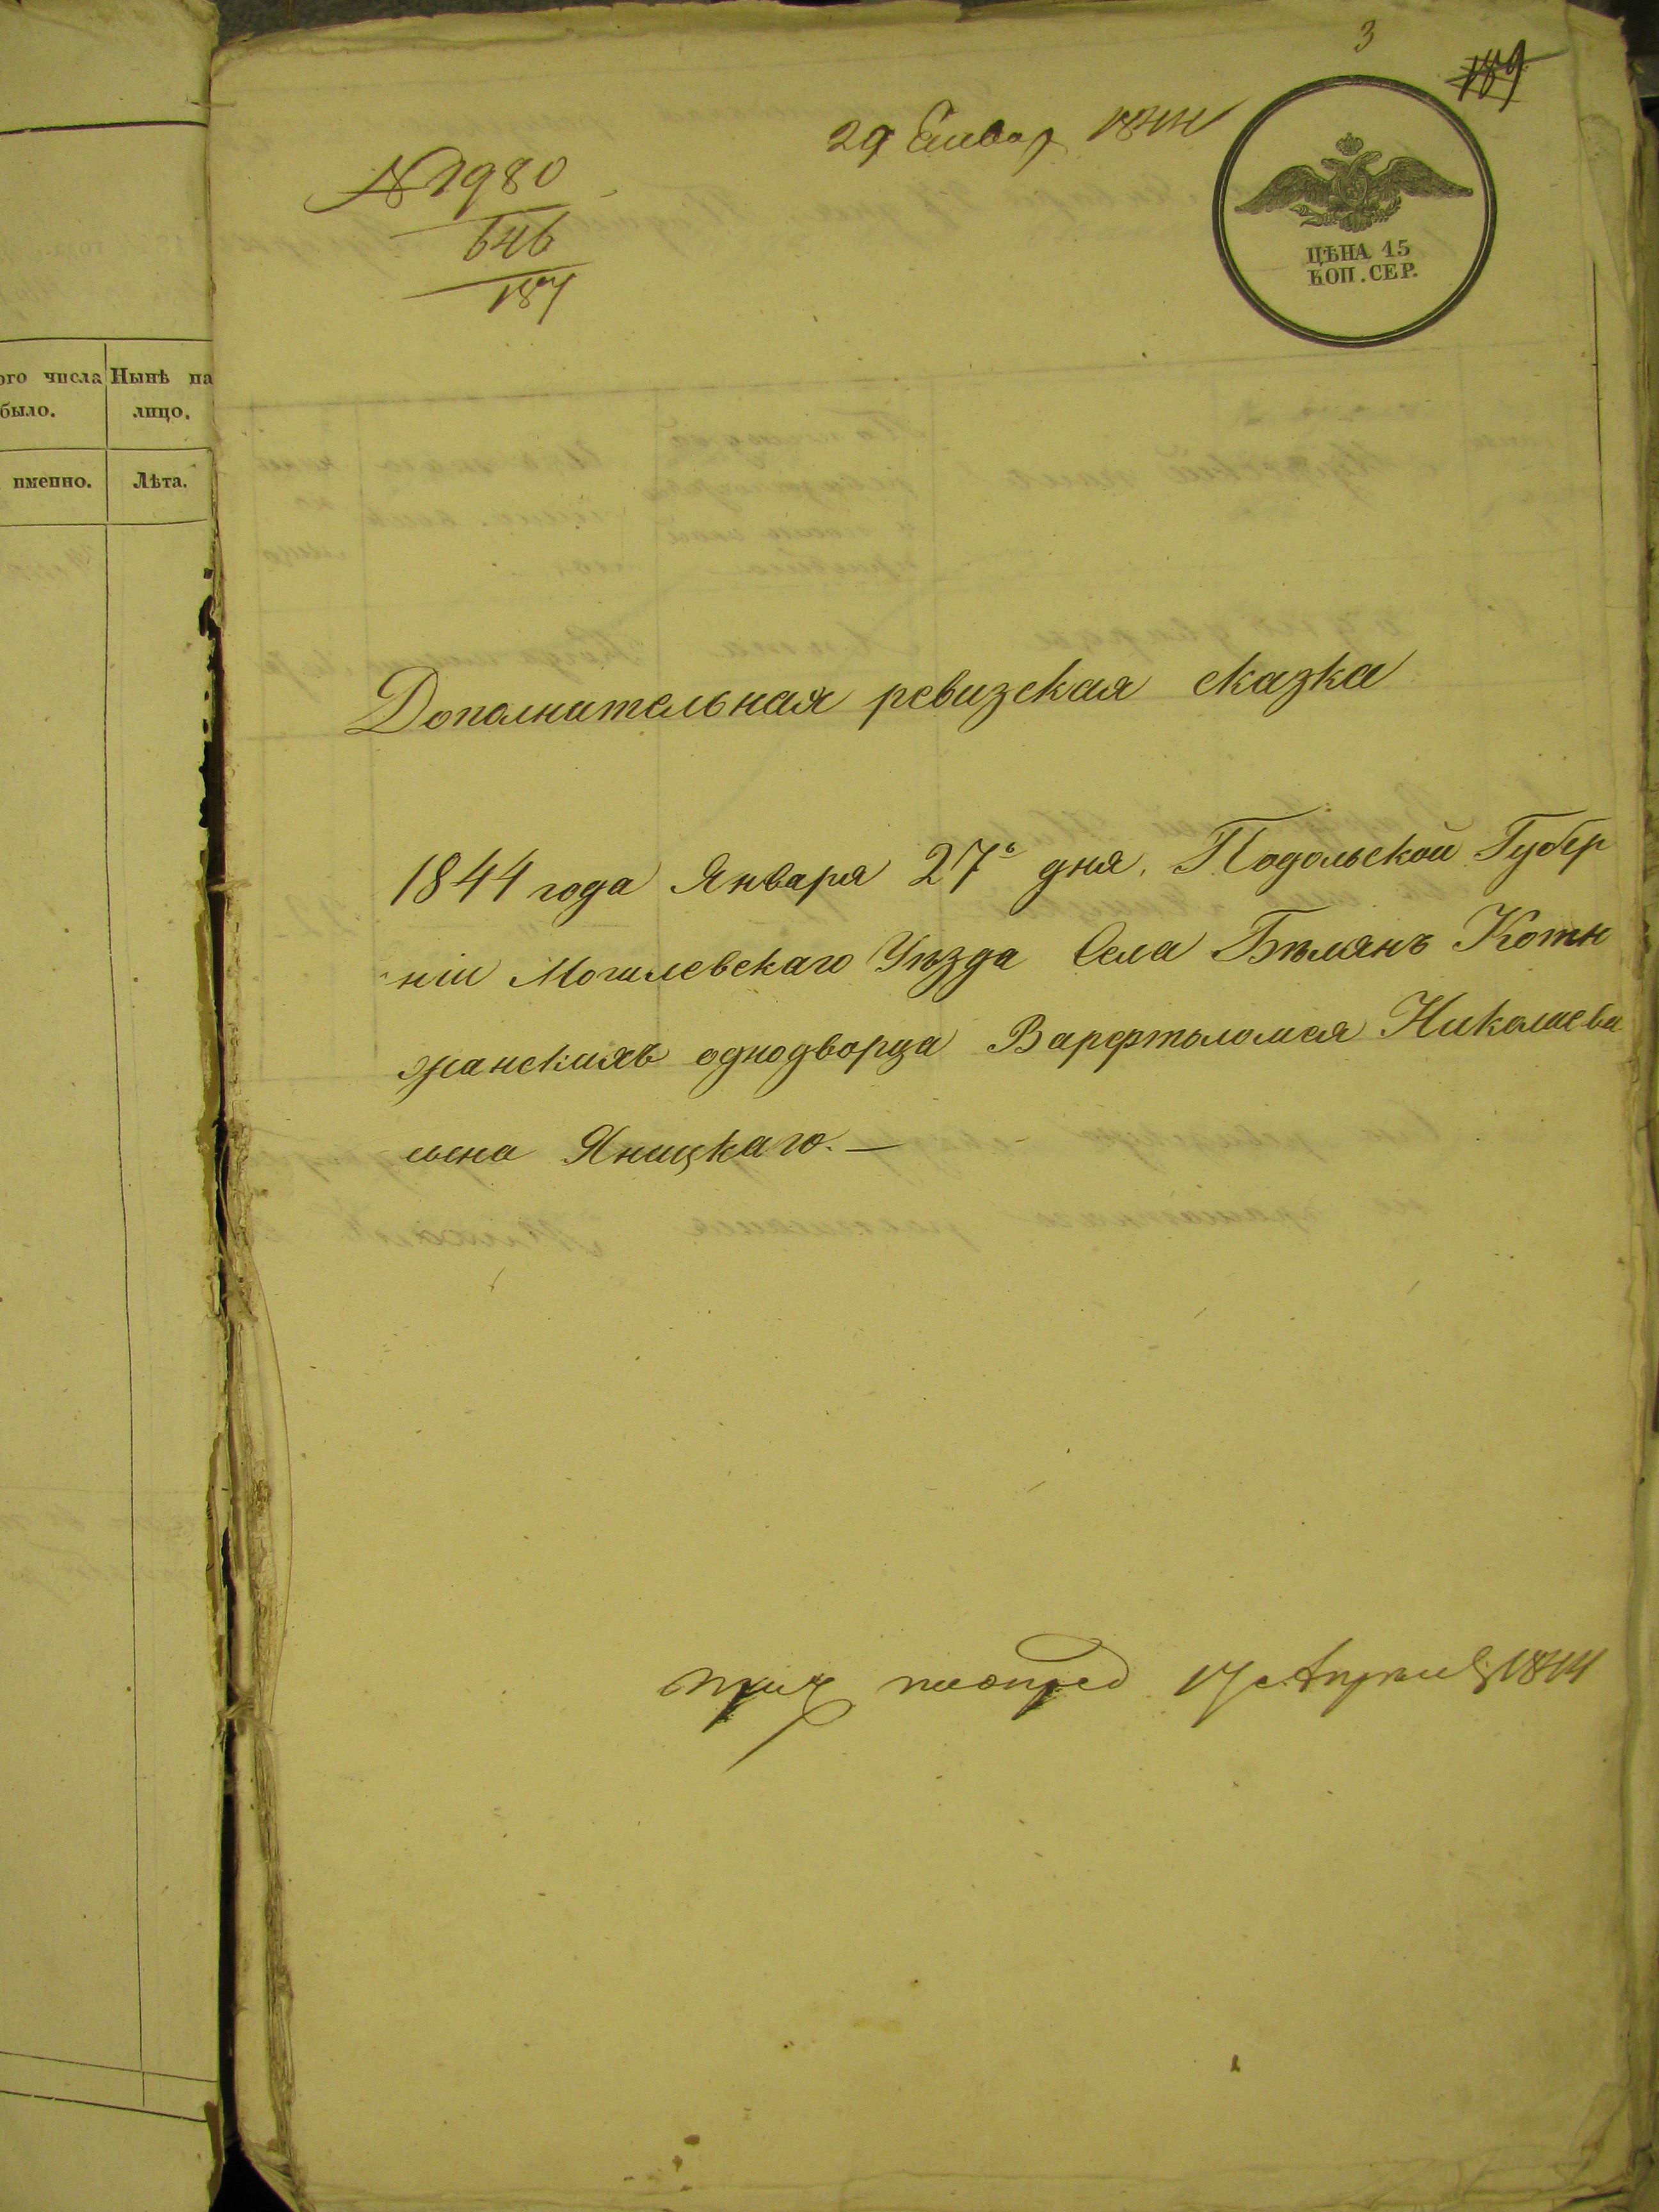 3
189
29 Январ 1844
№ 1980
646
187
ЦѢНА 15
КОП. СЕР.
ого числа
было.
Нынѣ на
лицо.
именно.
Лѣта.
Дополнительная ревизская сказка
1844 года Января 27го дня. Подольской Губер
ніи Могилевскаго Уѣзда Села Бѣлянъ Котю
жанскихъ однодворца Варфтоломея Николаева
сына Яницкаго. —
17 Апрѣля 1844